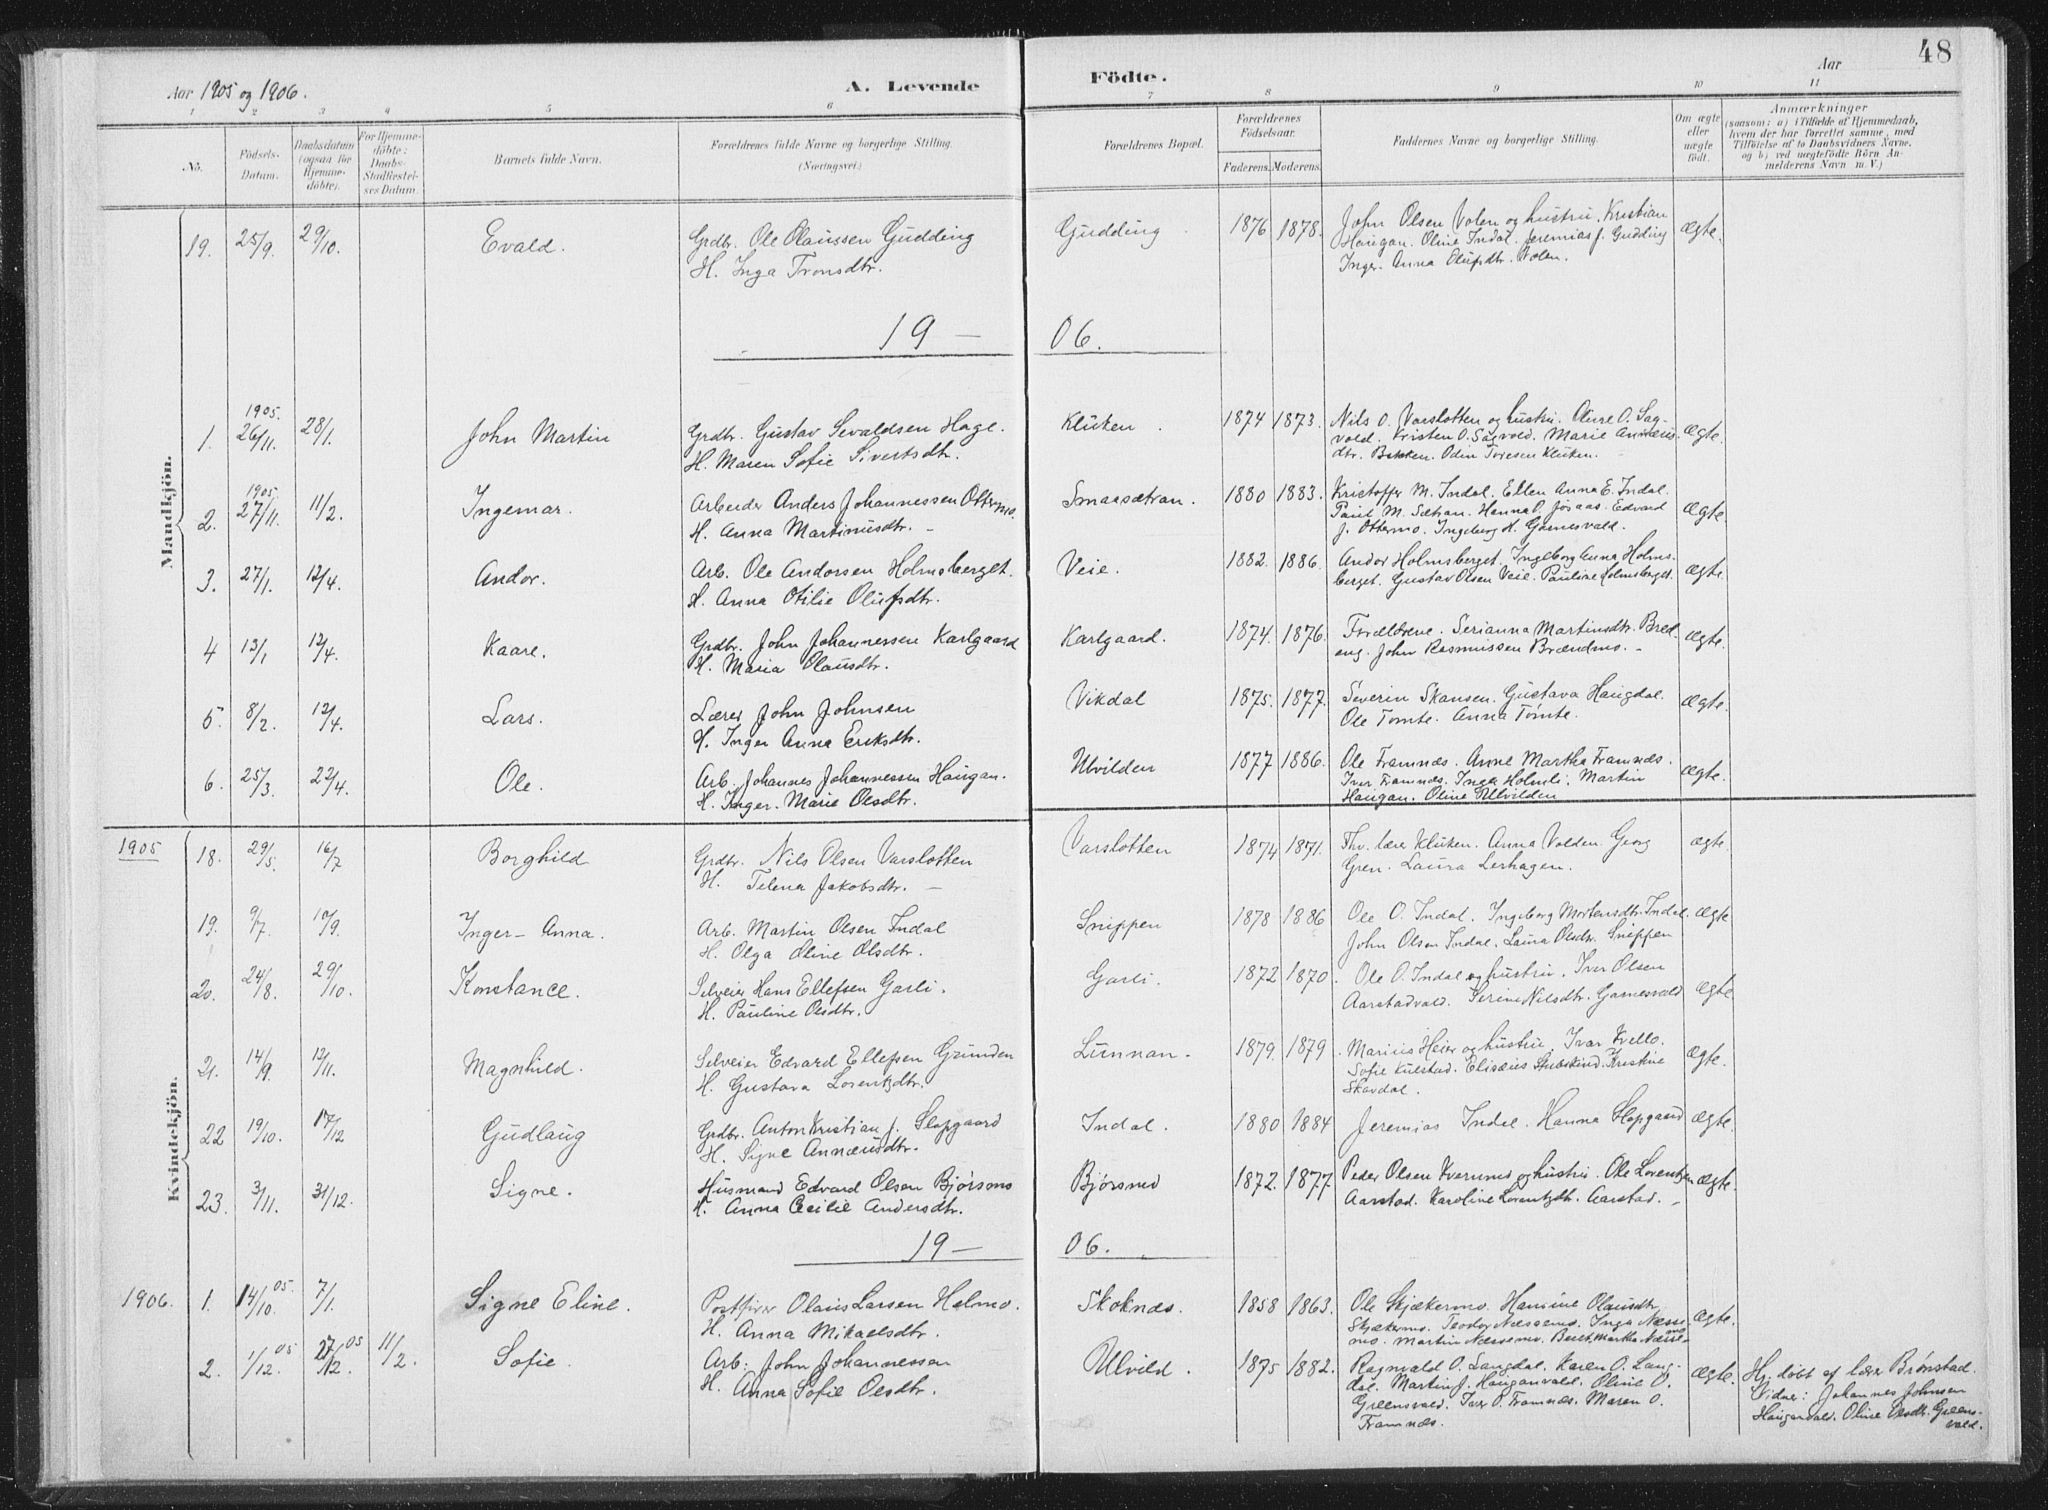 48
Aar 1905 og 1906.
A. Levende
Födte.
Aar
1 2 3 4 5 6 7 8 9 10 11
No.
Födsels-
Datum.
Daabsdatum
(ogsaa for
Hjemme-
döbte).
For Hjemme-
döbte:
Daabs-
Stadfæstel-
ses Datum.
Barnets fulde Navn.
Forældrenes fulde Navne og borgerlige Stilling.
(Næringsvei.)
Forældrenes Bopæl.
Forældrenes
Födselsaar.
Faderens. Moderens.
Faddernes Navne og borgerlige Stilling.
Om ægte
eller
uægte
födt.
Anmærkninger
(saasom: a) i Tilfælde af Hjemmedaab,
hvem der har forrettet samme, med
Tilföielse af to Daabsvidners Navne,
og b) ved uægtefödte Börn An-
melderens Navn m. V.)
Mandkjön.
19. 25/9. 29/10. Evald. Grdbr. Ole Olaussen Gudding
H. Inga Tronsdtr.
Gudding. 1876 1878. John Olsen Volen og hustru. Kristian
Haugan. Oline Indal. Jeremias J. Gudding
Inger-Anna Olufsdtr. Volen.
ægte.
19— 06.
1. 1905. 26/11. 28/1. John Martin Grdbr. Gustav Sevaldsen Hage.
H. Maren Sofie Sivertsdtr.
Kluken. 1874 1873. Nils O. Varslotten og hustru. Oline O. Sag-
vold. Kristen O. Sagvold. Marie Annæus-
dtr. Bakken. Odin Toresen Kluken.
ægte.
2. 1905. 27/11. 11/2. Ingemar. Arbeider Anders Johannessen Ottermo.
H. Anna Martinusdtr. —
Smaasætran. 1880 1883. Kristoffer M. Indal. Ellen Anna E. Indal.
Paul M. Sætran. Hanna O. Jøraas. Edvard
J. Ottermo. Ingeborg H. Garnesvald.
ægte
3. 27/1. 12/4. Andor. Arb. Ole Andorsen Holmsberget.
H. Anna Otilie Olufsdtr.
Veie. 1882. 1886. Andor Holmsberget. Ingeborg Anna Holms-
berget. Gustav Olsen Veie. Pauline Holmsberget.
ægte.
4 13/1 12/4. Kaare. Grdbr. John Johannessen Karlgaard
H. Maria Olausdtr.
Karlgaard. 1874. 1876. Forældrene. Serianna Martinsdtr. Bred-
eng. John Rasmussen Brændmo. —
ægte.
5. 8/2. 12/4. Lars. Lærer John Johnsen
H. Inger Anna Eriksdtr.
Vikdal 1875. 1877. Severin Skansen. Gustava Haugdal.
Ole Tømte. Anna Tømte.
ægte.
6. 25/3. 22/4. Ole. Arb. Johannes Johannessen Haugan.
H. Inger-Marie Olesdtr.
Ulvilden 1877 1886. Ole Framnæs. Anne Martha Framnæs.
Iver Framnæs. Inger Holmli. Martin
Haugan. Oline Ulvilden
ægte.
Kvindekjön.
1905
18. 29/5. 16/7 Borghild Grdbr. Nils Olsen Varslotten
H. Telena Jakobsdtr. —
Varslotten 1874 1871. Thv. lærer Kluken. Anna Volden. Georg
Gren. Laura Lerhagen.
ægte.
19. 9/7. 10/9. Inger-Anna. Arb. Martin Olsen Indal
H. Olga Oline Olsdtr.
Snippen 1878 1886 Ole O. Indal. Ingeborg Mortensdtr. Indal.
John Olsen Indal. Laura Olsdtr. Snippen
ægte
20. 24/8. 29/10. Konstance. Selveier Hans Ellefsen Garli.
H. Pauline Olsdtr.
Garli. 1872 1870. Ole O. Indal og hustru. Iver Olsen
Aarstadvald. Serine Nilsdtr. Garnesvald
ægte
21. 14/9. 12/11. Magnhild. Selveier Edvard Ellefsen Grunden
H. Gustava Lorentzdtr.
Lunnan. 1879. 1879 Marius Heier og hustru. Ivar Kvello.
Sofie Kulstad. Elisæus Stubskind. Kristine
Skavdal.
ægte.
22 19/10. 17/12 Gudlaug Grdbr. Anton Kristian J. Slapgaard
H. Signe Annæusdtr.
Indal. 1880 1884 Jeremias Indal. Hanna Slapgaard
ægte.
23. 3/11. 31/12. Signe. Husmand Edvard Olsen Bjørsmo
H. Anna Cecilie Andersdtr.
Bjørsmo 1872. 1877 Peder Olsen Kverumo og hustru. Ole Lorentzen
Aarstad. Karoline Lorentzdtr. Aarstad. —
ægte.
19— 06.
1906.
1. 14/10. 05 7/1. Signe Eline. Postfører Olaus Larsen Holmo.
H. Anna Mikaelsdtr.
Skoknæs. 1858 1863. Ole Skjækermo. Hansine Olausdtr.
Skjækermo. Teodor Næssemo. Inga Næsse-
mo. Martin Næssemo. Beret Martha Næssemo
ægte.
2. 1/12. 05 27/12. 05 11/2. Sofie. Arb. John Johannessen
H. Anna Sofie Olesdtr.
Ulvild. 1875 1882. Ragnvald O. Langdal. Karen O. Lang-
dal. Martin J. Hauganvald. Oline O.
Greensvald. Iver O. Framnæs. Maren O.
Framnæs.
ægte. Hj. döbt af lærer Brønstad.
Vidner: Johannes Johnsen
Hauganvald. Oline Olesdtr. Greens-
vald.